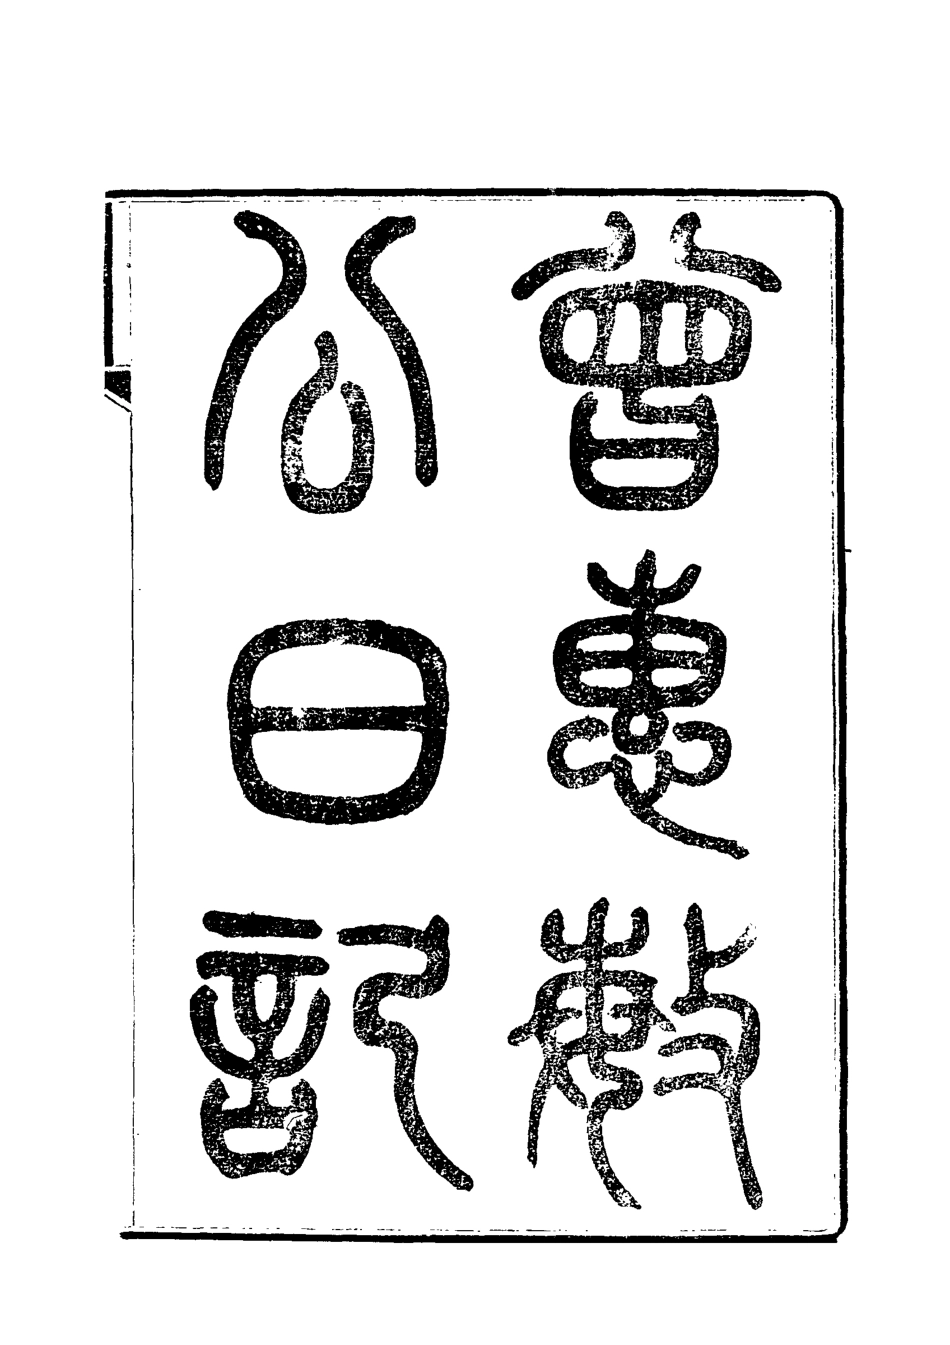 曾惠敏
公日記